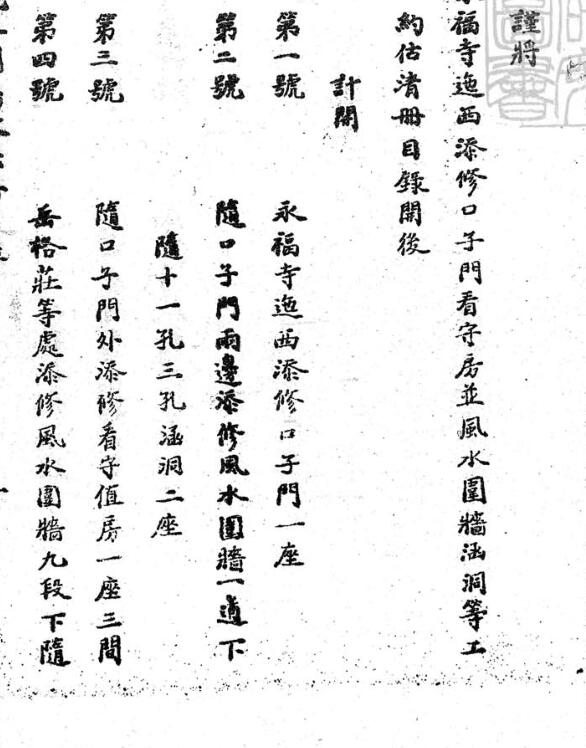 謹將
福寺迤西添修口子門看守房並風水圍牆涵洞等工
約估清冊目錄開後
計開
第一號　永福寺迤西添修口子門一座
第二號　隨口子門兩邊添修風水圍牆一道下
隨十一孔三孔涵洞二座
第三號　隨口子門外添修看守值房一座三間
第四號　岳格莊等處添修風水圍牆九段下隨